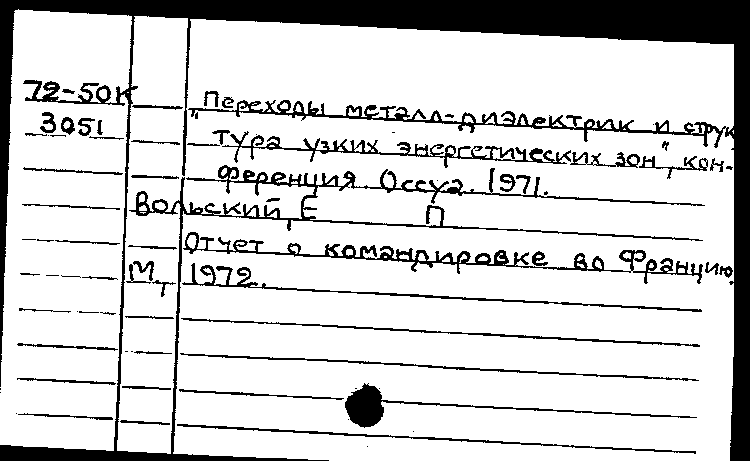 72-50К „Переходы металл-диэлектрик и струк
3051 тура узких энергетических зон", кон-
ференция. Оссуа. 1971.
Вольский, Е П
Отчет о командировке во Францию.
М., 1972.